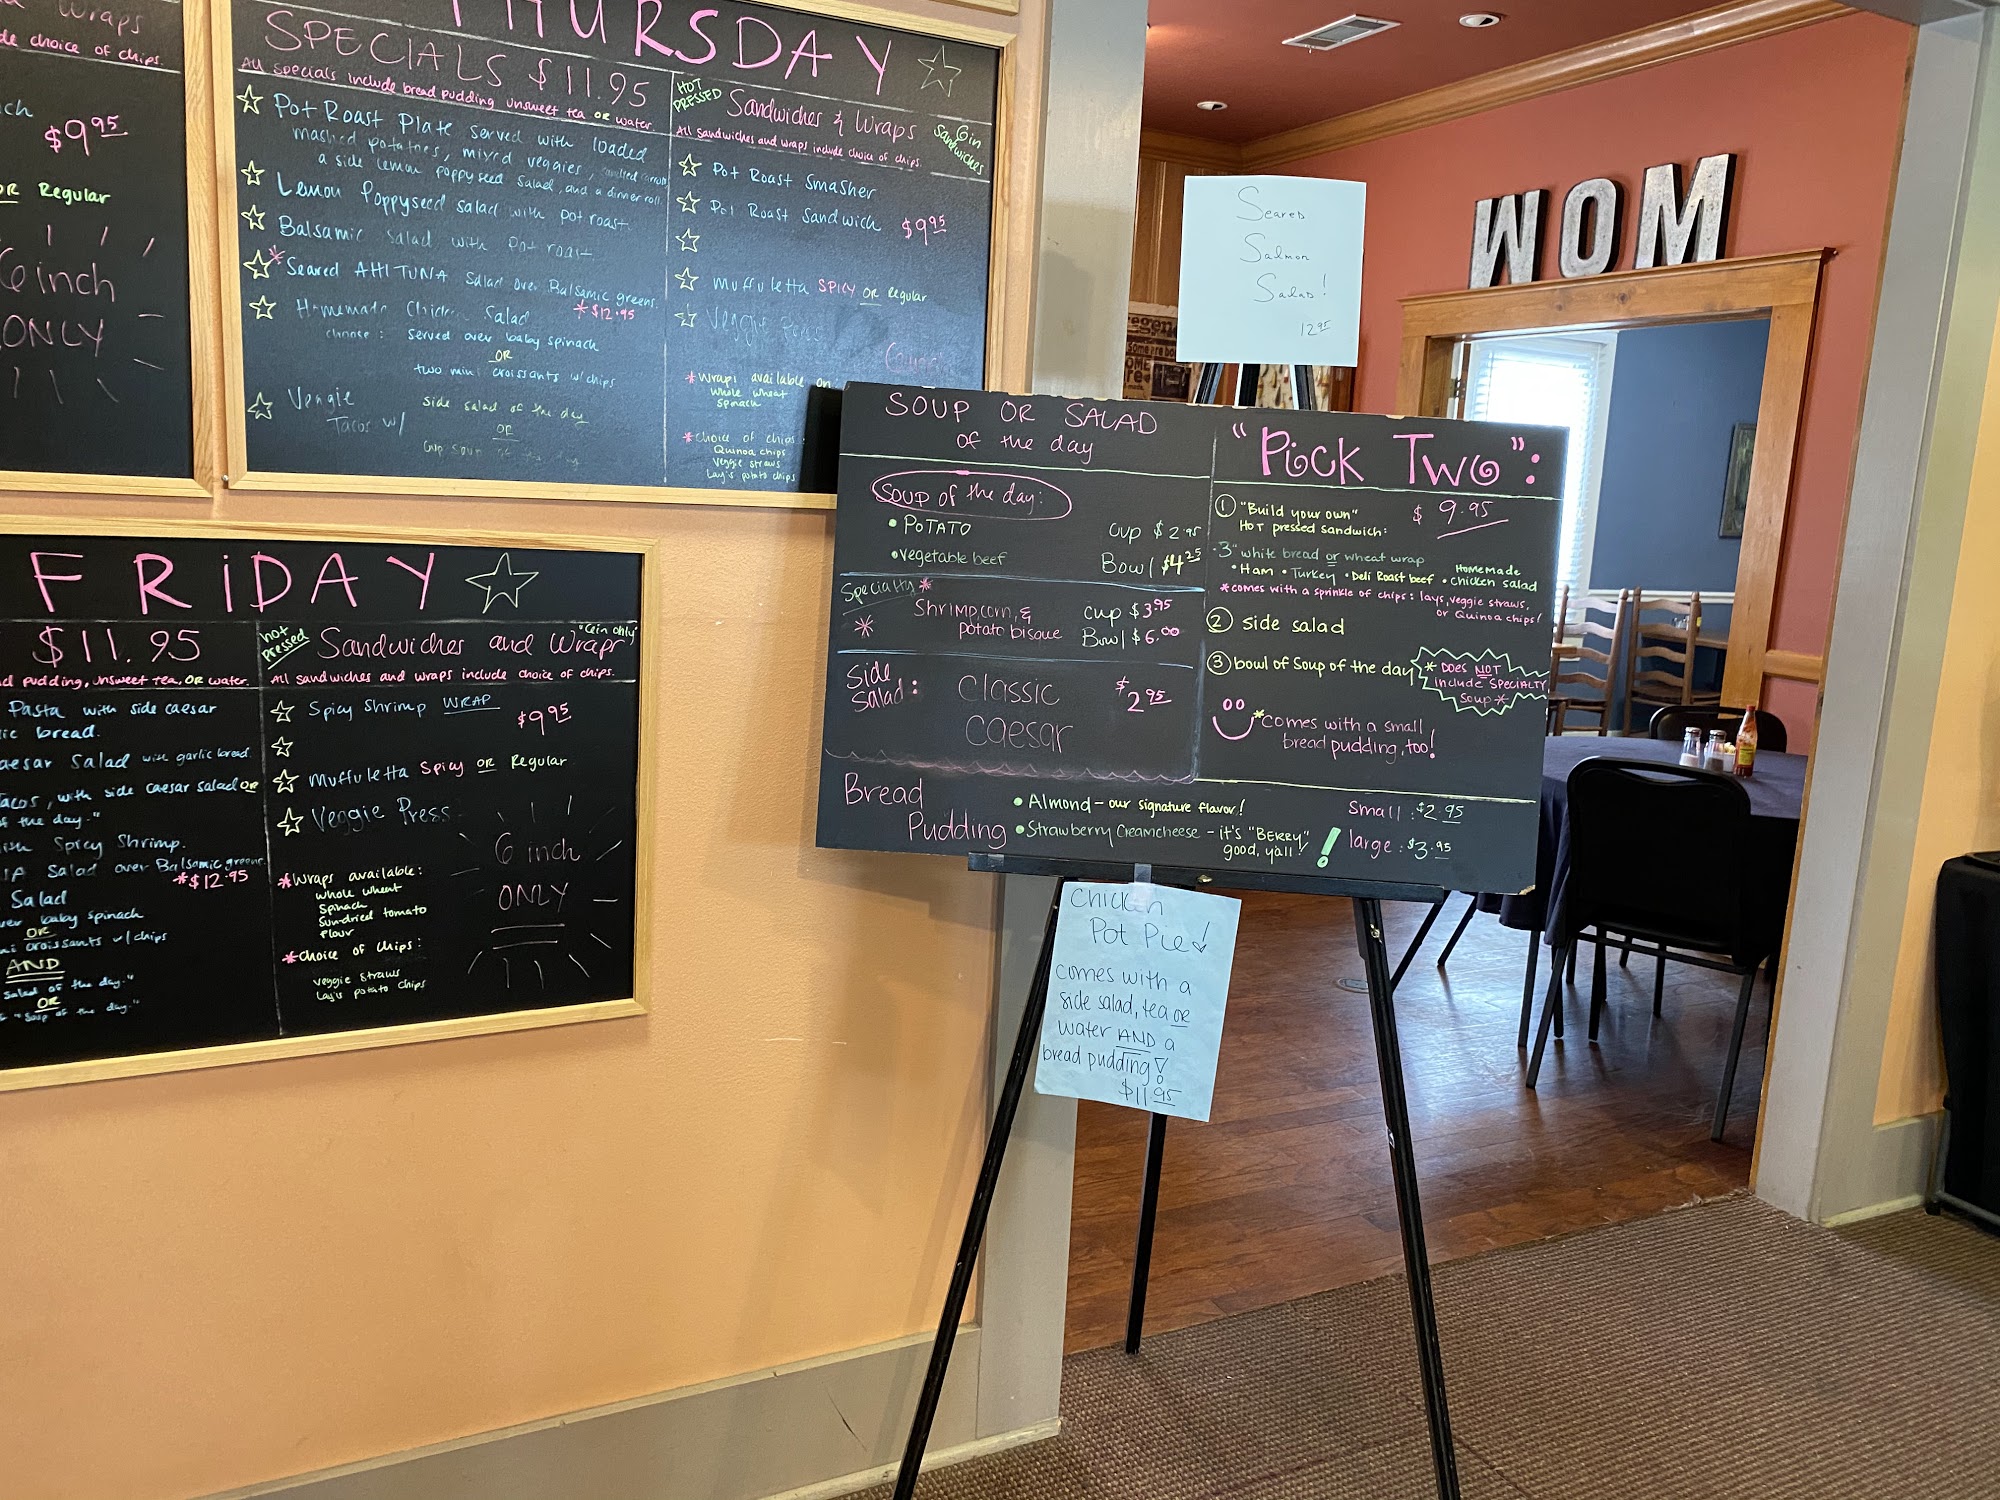 Wraps
de choice of chips.
ch
$9.95
OR Regular
6 inch
ONLY
THURSDAY
SPECIALS $11.95
All specials include bread pudding unsweet tea or water.
Pot Roast Plate served with loaded
mashed potatoes, mixed veggies,
a side lemon poppyseed salad, and a dinner roll.
Lemon Poppyseed salad with pot roast
Balsamic salad with pot roast
*Seared AHI TUNA Salad over Balsamic greens.
*$12.95
Homemade Chicken Salad
choose: served over baby spinach
OR
two mini croissants w/chips
Veggie
Tacos w/
side salad of the day
OR
cup soup of the day
HOT PRESSED
Sandwiches & Wraps
6in sandwiches
All sandwiches and wraps include choice of chips.
Pot Roast Smasher
Pot Roast Sandwich $9.95
Muffuletta SPICY OR Regular
Veggie Press
*Wraps available on
whole wheat
spinach
*choice of chips:
Quinoa chips
Veggie straws
Lay's potato chips
FRIDAY
$11.95
d pudding, unsweet tea, OR water.
Pasta with side caesar
ic bread.
aesar Salad with garlic bread.
Tacos, with side caesar salad OR
f the day."
ish Spicy Shrimp.
A Salad over Balsamic greens.
*$12.95
Salad
ver baby spinach
OR
ni croissants w/chips
AND
salad of the day."
OR
"Soup of the day."
hot pressed
Sandwiches and Wraps
"6in only"
All sandwiches and wraps include choice of chips.
Spicy Shrimp WRAP
$9.95
Muffuletta Spicy OR Regular
Veggie Press
6 inch
ONLY
*Wraps available:
whole wheat
Spinach
Sun-dried tomato
Flour
*Choice of chips:
veggie straws
Lay's potato chips
Seared
Salmon
Salad!
12.95
WOM
SOUP OR SALAD
of the day
Soup of the day:
• POTATO
• vegetable beef
cup $2.95
Bowl $4.25
Specialty *
* Shrimp, corn, &
potato bisque
cup $3.95
Bowl $6.00
Side
Salad:
Classic
Caesar
$2.95
"Pick Two":
① "Build your own"
Hot pressed sandwich:
$ 9.95
-3" white bread or wheat wrap
• Ham • Turkey • Deli Roast beef • Homemade chicken salad
*comes with a sprinkle of chips: lays, veggie straws,
or Quinoa chips!
② side salad
③ bowl of soup of the day
* Does NOT
include SPECIALTY
soup*
*Comes with a small
bread pudding, too!
Bread
Pudding
• Almond - our signature flavor!
• Strawberry Creamcheese - it's "BERRY"
good, y'all!
Small: $2.95
large: $3.95
Chicken
Pot Pie!
comes with a
side salad, tea or
water AND a
bread pudding!
$11.95